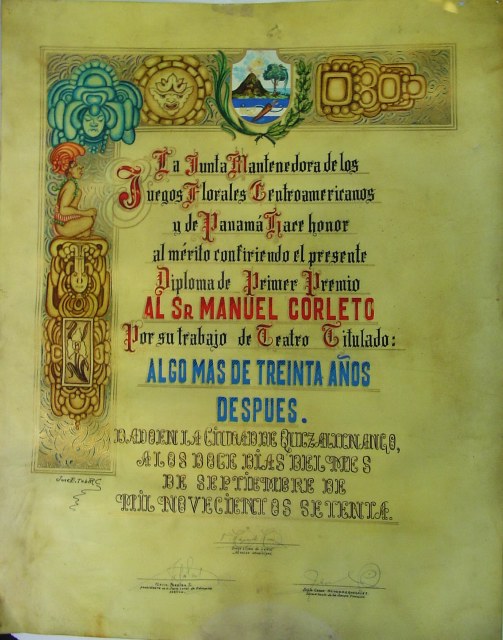 La Junta Mantenedora de los
Juegos Florales Centroamericanos
y de Panamá Hace honor
al mérito confiriendo el presente
Diploma de Primer Premio
AL Sr MANUEL CORLETO
Por su trabajo de Teatro Titulado:
ALGO MAS DE TREINTA AÑOS
DESPUES.
DADO EN LA CIUDAD DE QUEZALTENANGO,
A LOS DOCE DIAS DEL MES
DE SEPTIEMBRE DE
MIL NOVECIENTOS SETENTA.